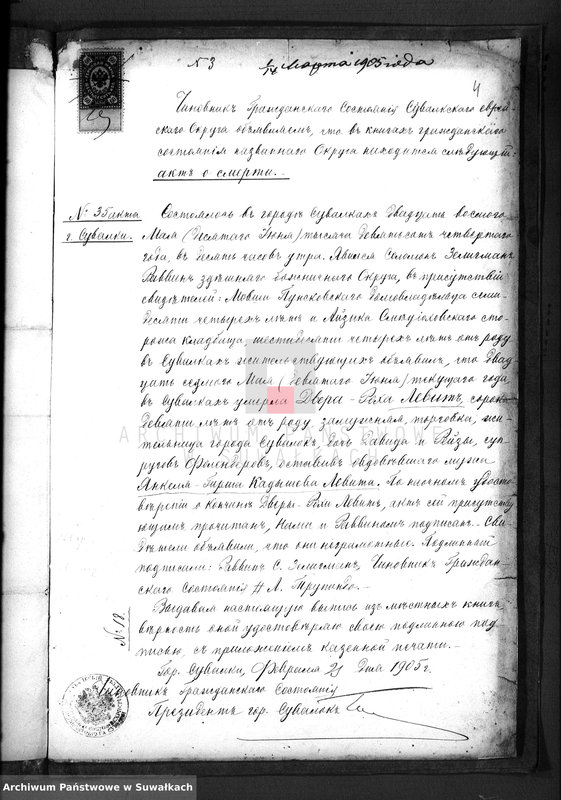 N 3 1/14 Марта 1905 года
4
Чиновникъ Гражданскаго Состоянія Сувалкскаго еврей-
скаго Округа объявляетъ, что въ книгахъ гражданскаго
состоянія названнаго Округа находится слѣдующій
актъ о смерти.
№ 35 акта
г. Сувалки.
Состоялось въ городѣ Сувалкахъ двадцать восьмого
Мая (десятаго Іюня) тысяча девятьсотъ четвертаго
года, въ десять часовъ утра. Явился Соломонъ Зелигманъ
Раввинъ здѣшняго божничнаго Округа, въ присутствіи
свидѣтелей: Мовши Пунсковскаго домовладѣльца семи-
десяти четырехъ лѣтъ и Айзика сто-
рожа кладбища шестидесяти четырехъ лѣтъ отъ роду
въ Сувалкахъ жительствующихъ объявилъ, что двад-
цать седьмого Мая (девятаго Іюня) текущаго года
въ Сувалкахъ умерла Двера-Рхля Левитъ, сорока
девяти лѣтъ отъ роду, замужняя, торговка, жи-
тельница города Сувалокъ, дочь Давида и суп-
руговъ оставивъ овдовѣвшаго мужа
Янкеля-Гирша Кадышева Левита. По точномъ удосто-
вѣреніи о кончинѣ Дверы Левитъ, актъ сей присутству-
ющимъ прочитанъ, Нами и Раввиномъ подписанъ. Сви-
дѣтели объявили, что они неграмотные. Подлинный
подписали: Раввинъ С. Зелигманъ, Чиновникъ Граждан-
скаго Состоянія А.
№ 18.
Выдавая настоящую выпись изъ мѣстныхъ книгъ
вѣрность оной удостовѣряю своею подлинною под-
писью, съ приложеніемъ казенной печати.
Гор. Сувалки, Февраля 21 Дня 1905 г.
Чиновникъ Гражданскаго Состоянія
Президентъ гор. Сувалокъ
ARCHIWUM PAŃSTWOWE
W SUWAŁKACH
Archiwum Państwowe w Suwałkach